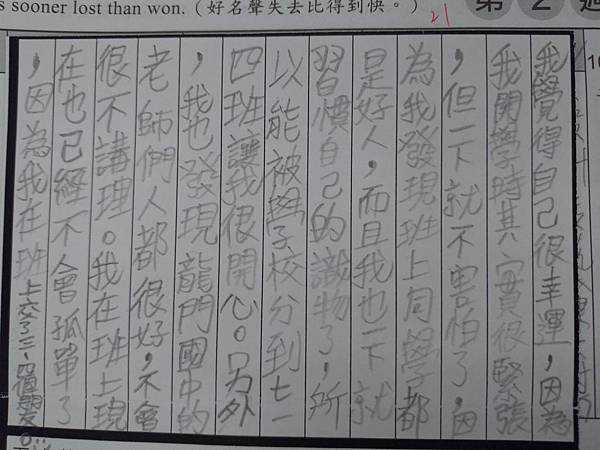 s sooner lost than won.（好名聲失去比得到快。）
21
第 2 週
我覺得自己很幸運，因為
我開學時其實很緊張
，但一下就不害怕了，因
為我發現班上同學都
是好人，而且我也一下就
習慣自己的識物了，所
以能被學校分到七一
四班讓我很開心。另外
，我也發現龍門國中的
老師們人都很好，不會
很不講理。我在班上現
在也已經不會孤單了
，因為我在班上交了三、四個